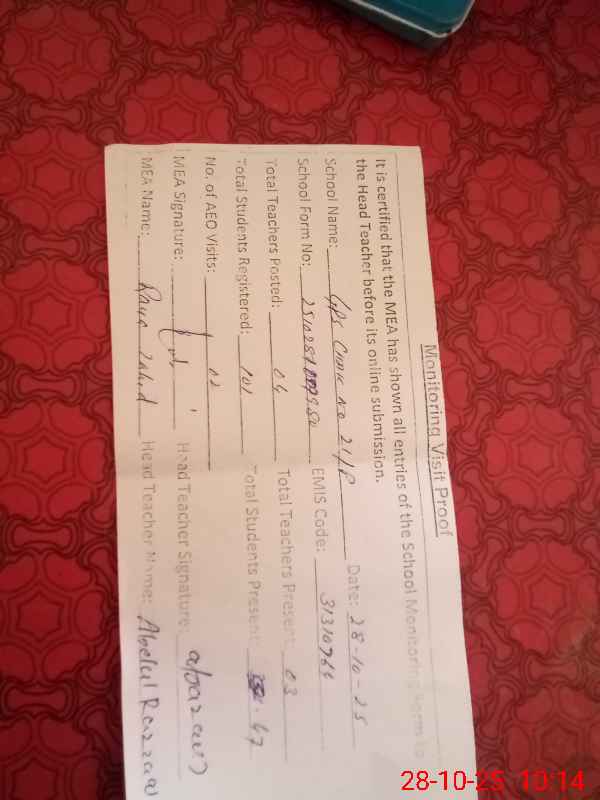 Monitoring Visit Proof
It is certified that the MEA has shown all entries of the School Monitoring Form to
the Head Teacher before its online submission.
School Name: GPS Chak No 21/P Date: 28-10-25
School Form No: EMIS Code: 31310764
Total Teachers Posted: 04 Total Teachers Present: 03
Total Students Registered: 101 Total Students Present: 67
No. of AEO Visits: 02
MEA Signature: Head Teacher Signature: abrazaw
MEA Name: Rana Zahid Head Teacher Name: Abdul Razzaq
28-10-25 10:14